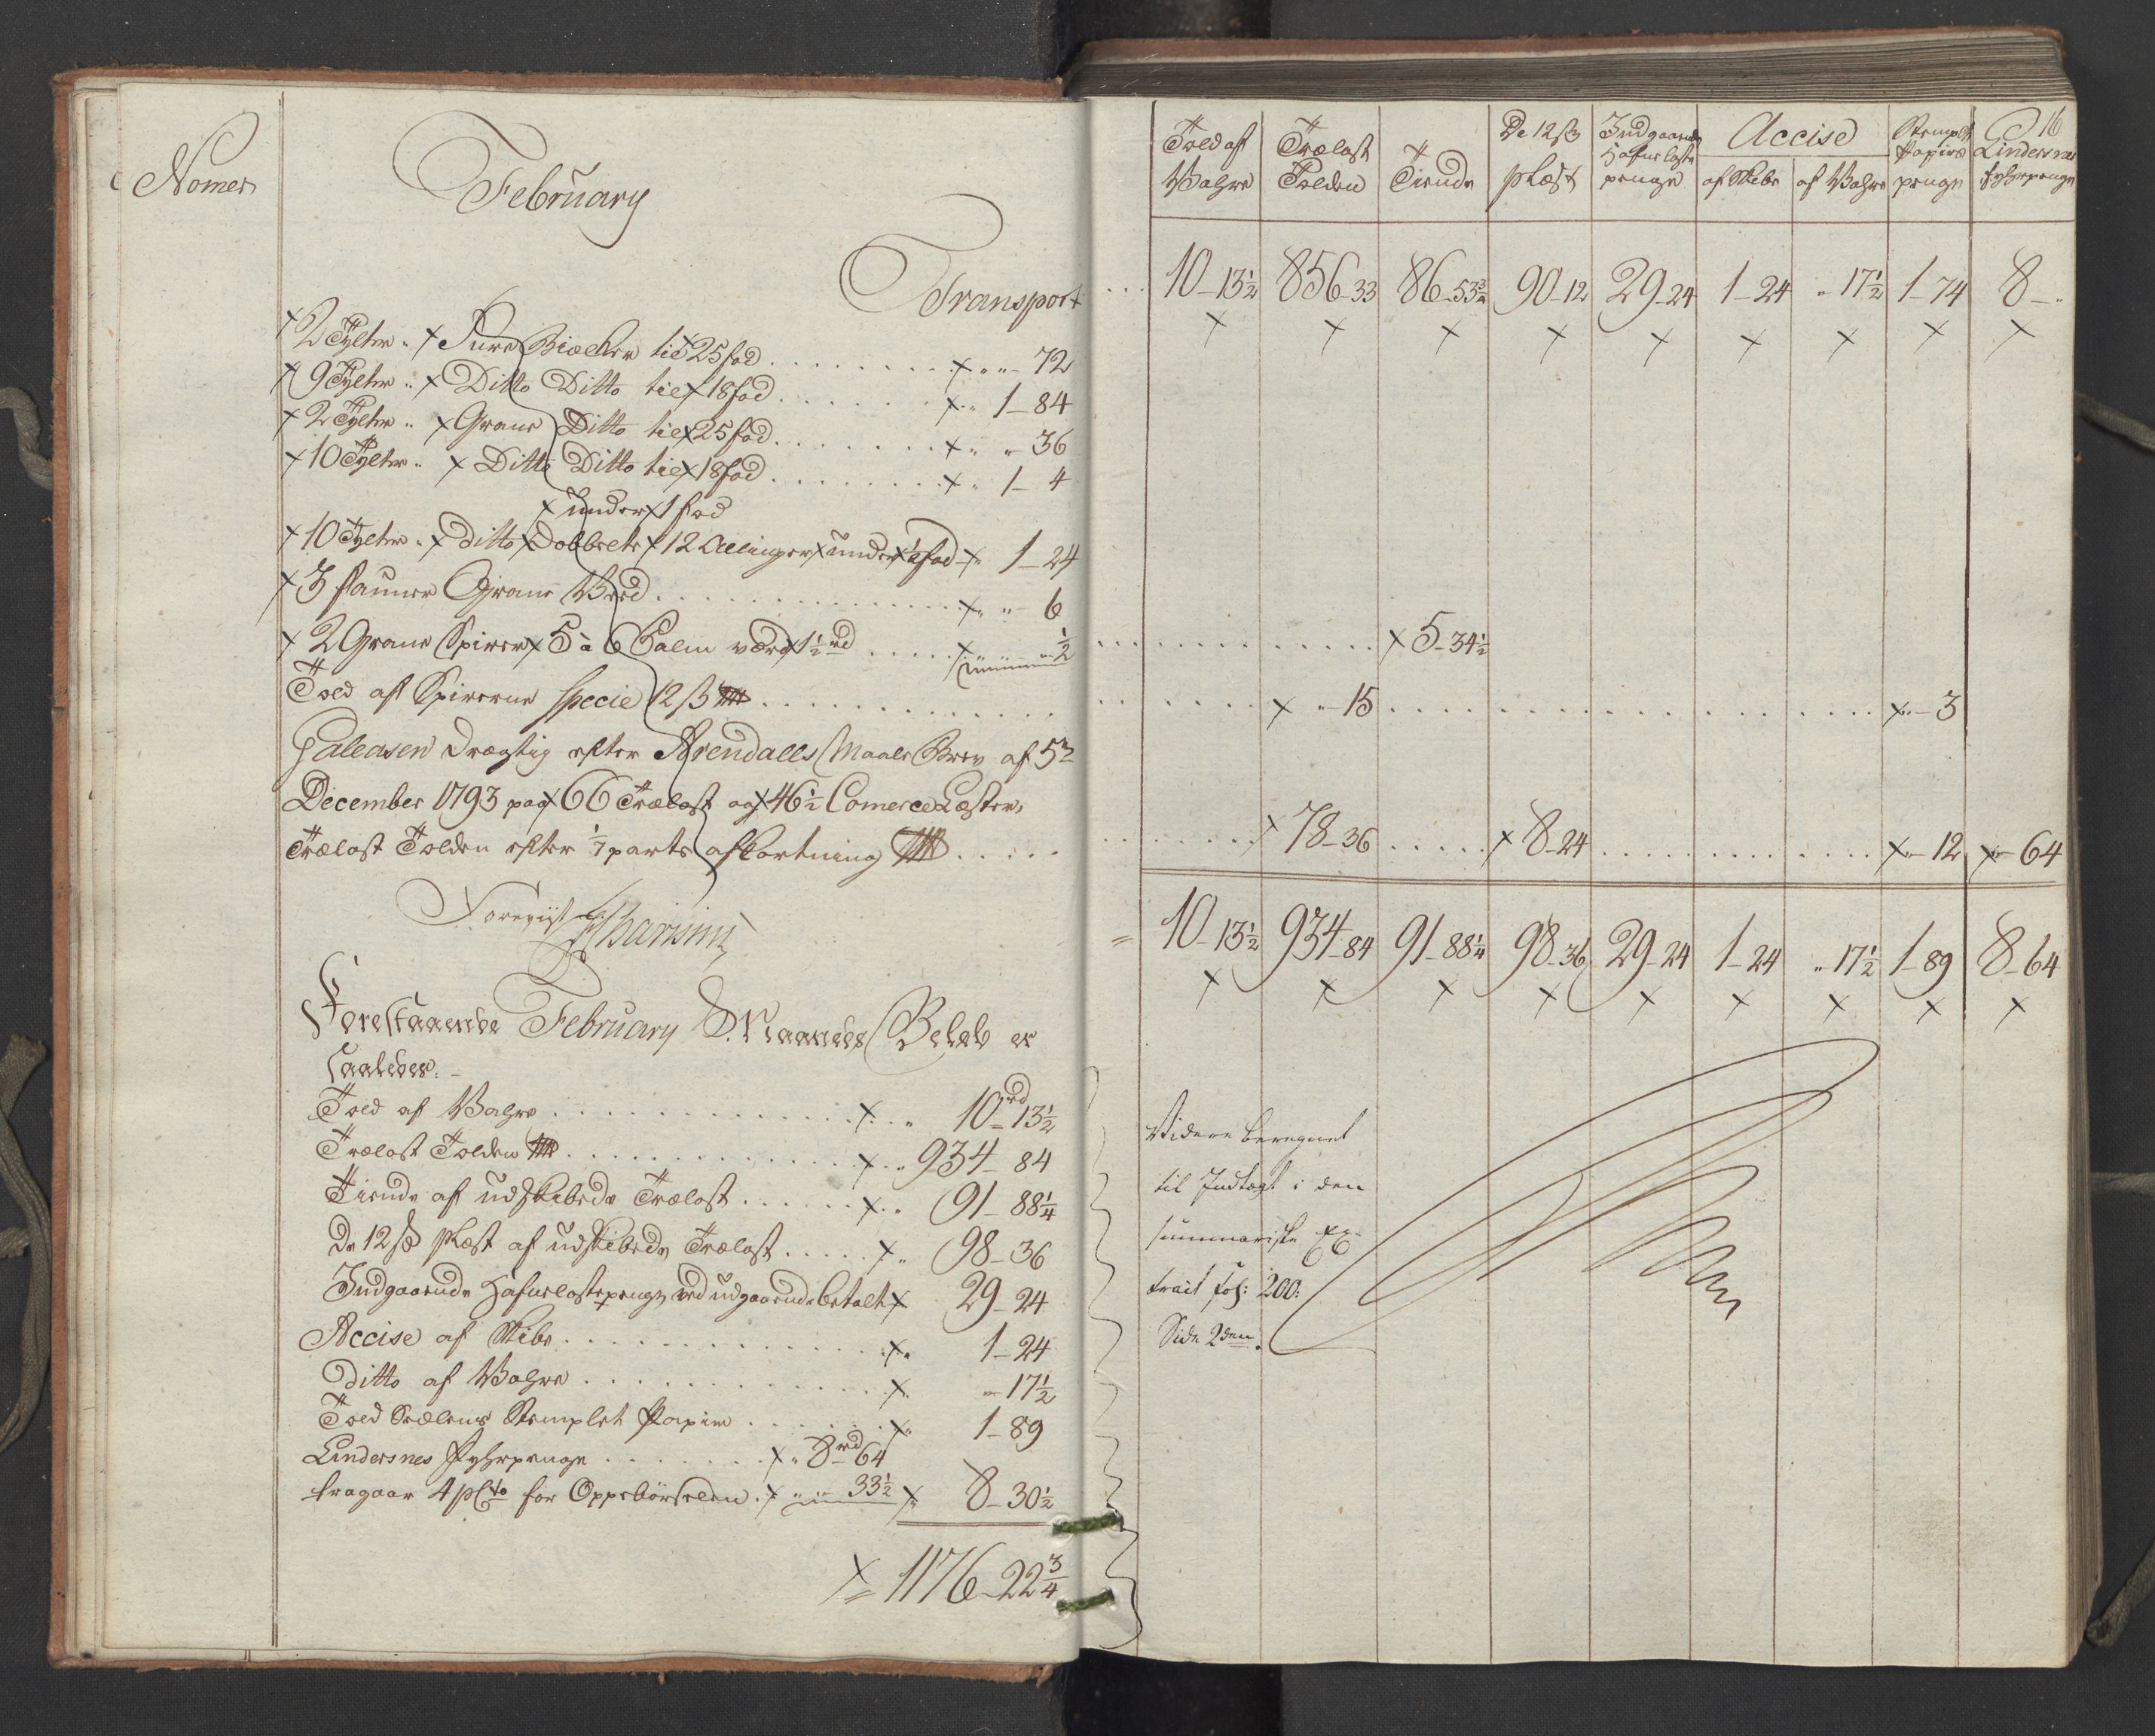 Nomer
February
Transport
2 Tylter " Fure Biælker til 25 fod " " 72
9 Tylter " Ditto Ditto til 18 fod " 1 - 84
2 Tylter " Grane Ditto til 25 fod " " 36
10 Tylter " Ditto Ditto til 18 fod " 1 - 4
under 1 fod
10 Tylter " Ditto Dobbelte 12 Allinger under 1/2 fod " 1 - 24
3 faune Grane Veed " " 6
2 Grane Spirer 5 à 6 Palm værd 1 1/2 rd " 1/2
Told af Spirerne Specie 12 ß
Galeasen Drægtig efter Arendalls Maale Brev af 5te
December 1793 paa 66 Trælast og 46 1/2 Comerce Læster,
Trælast Tolden efter 1/7 parts afkortning
Foreviist
Forestaaende February Maaneds Beløb er
saaledes. -
Told af Vahre 10 rd 13 1/2
Trælast Tolden 934 - 84
Tiende af udskibede Trælast 91 - 88 1/4
De 12 ß pLæst af udskibede Trælast 98 - 36
Indgaaende Hafurlastepenge ved udgaaende betalt 29 - 24
Accise af Skibe 1 - 24
Ditto af Vahre " 17 1/2
Told Sedlens Stemplet Papiir 1 - 89
Lindersnes Fyhrpenge 8 rd 64
fragaar 4 pCto for Oppebörselen 33 1/2 8 - 30 1/2
1176 - 22 3/4
16
Told af Vahre
Trælast Tolden
Tiende
De 12 ß pLæst
Indgaaende Hafurlaste penge
Accise
af Skibe
af Vahre
Stemplet Papiirs penge
Lindersnes Fyhrpenge
10 - 13 1/2 856 - 33 86 - 53 3/4 90 - 12 29 - 24 1 - 24 " 17 1/2 1 - 74 8 - "
5 - 34 1/2
" - 15 " - 3
78 - 36 8 - 24 " - 12 " - 64
10 - 13 1/2 934 - 84 91 - 88 1/4 98 - 36 29 - 24 1 - 24 " 17 1/2 1 - 89 8 - 64
Videre beregnet
til Indtægt i den
summariske Ex-
tract fol: 200:
Side 2den.